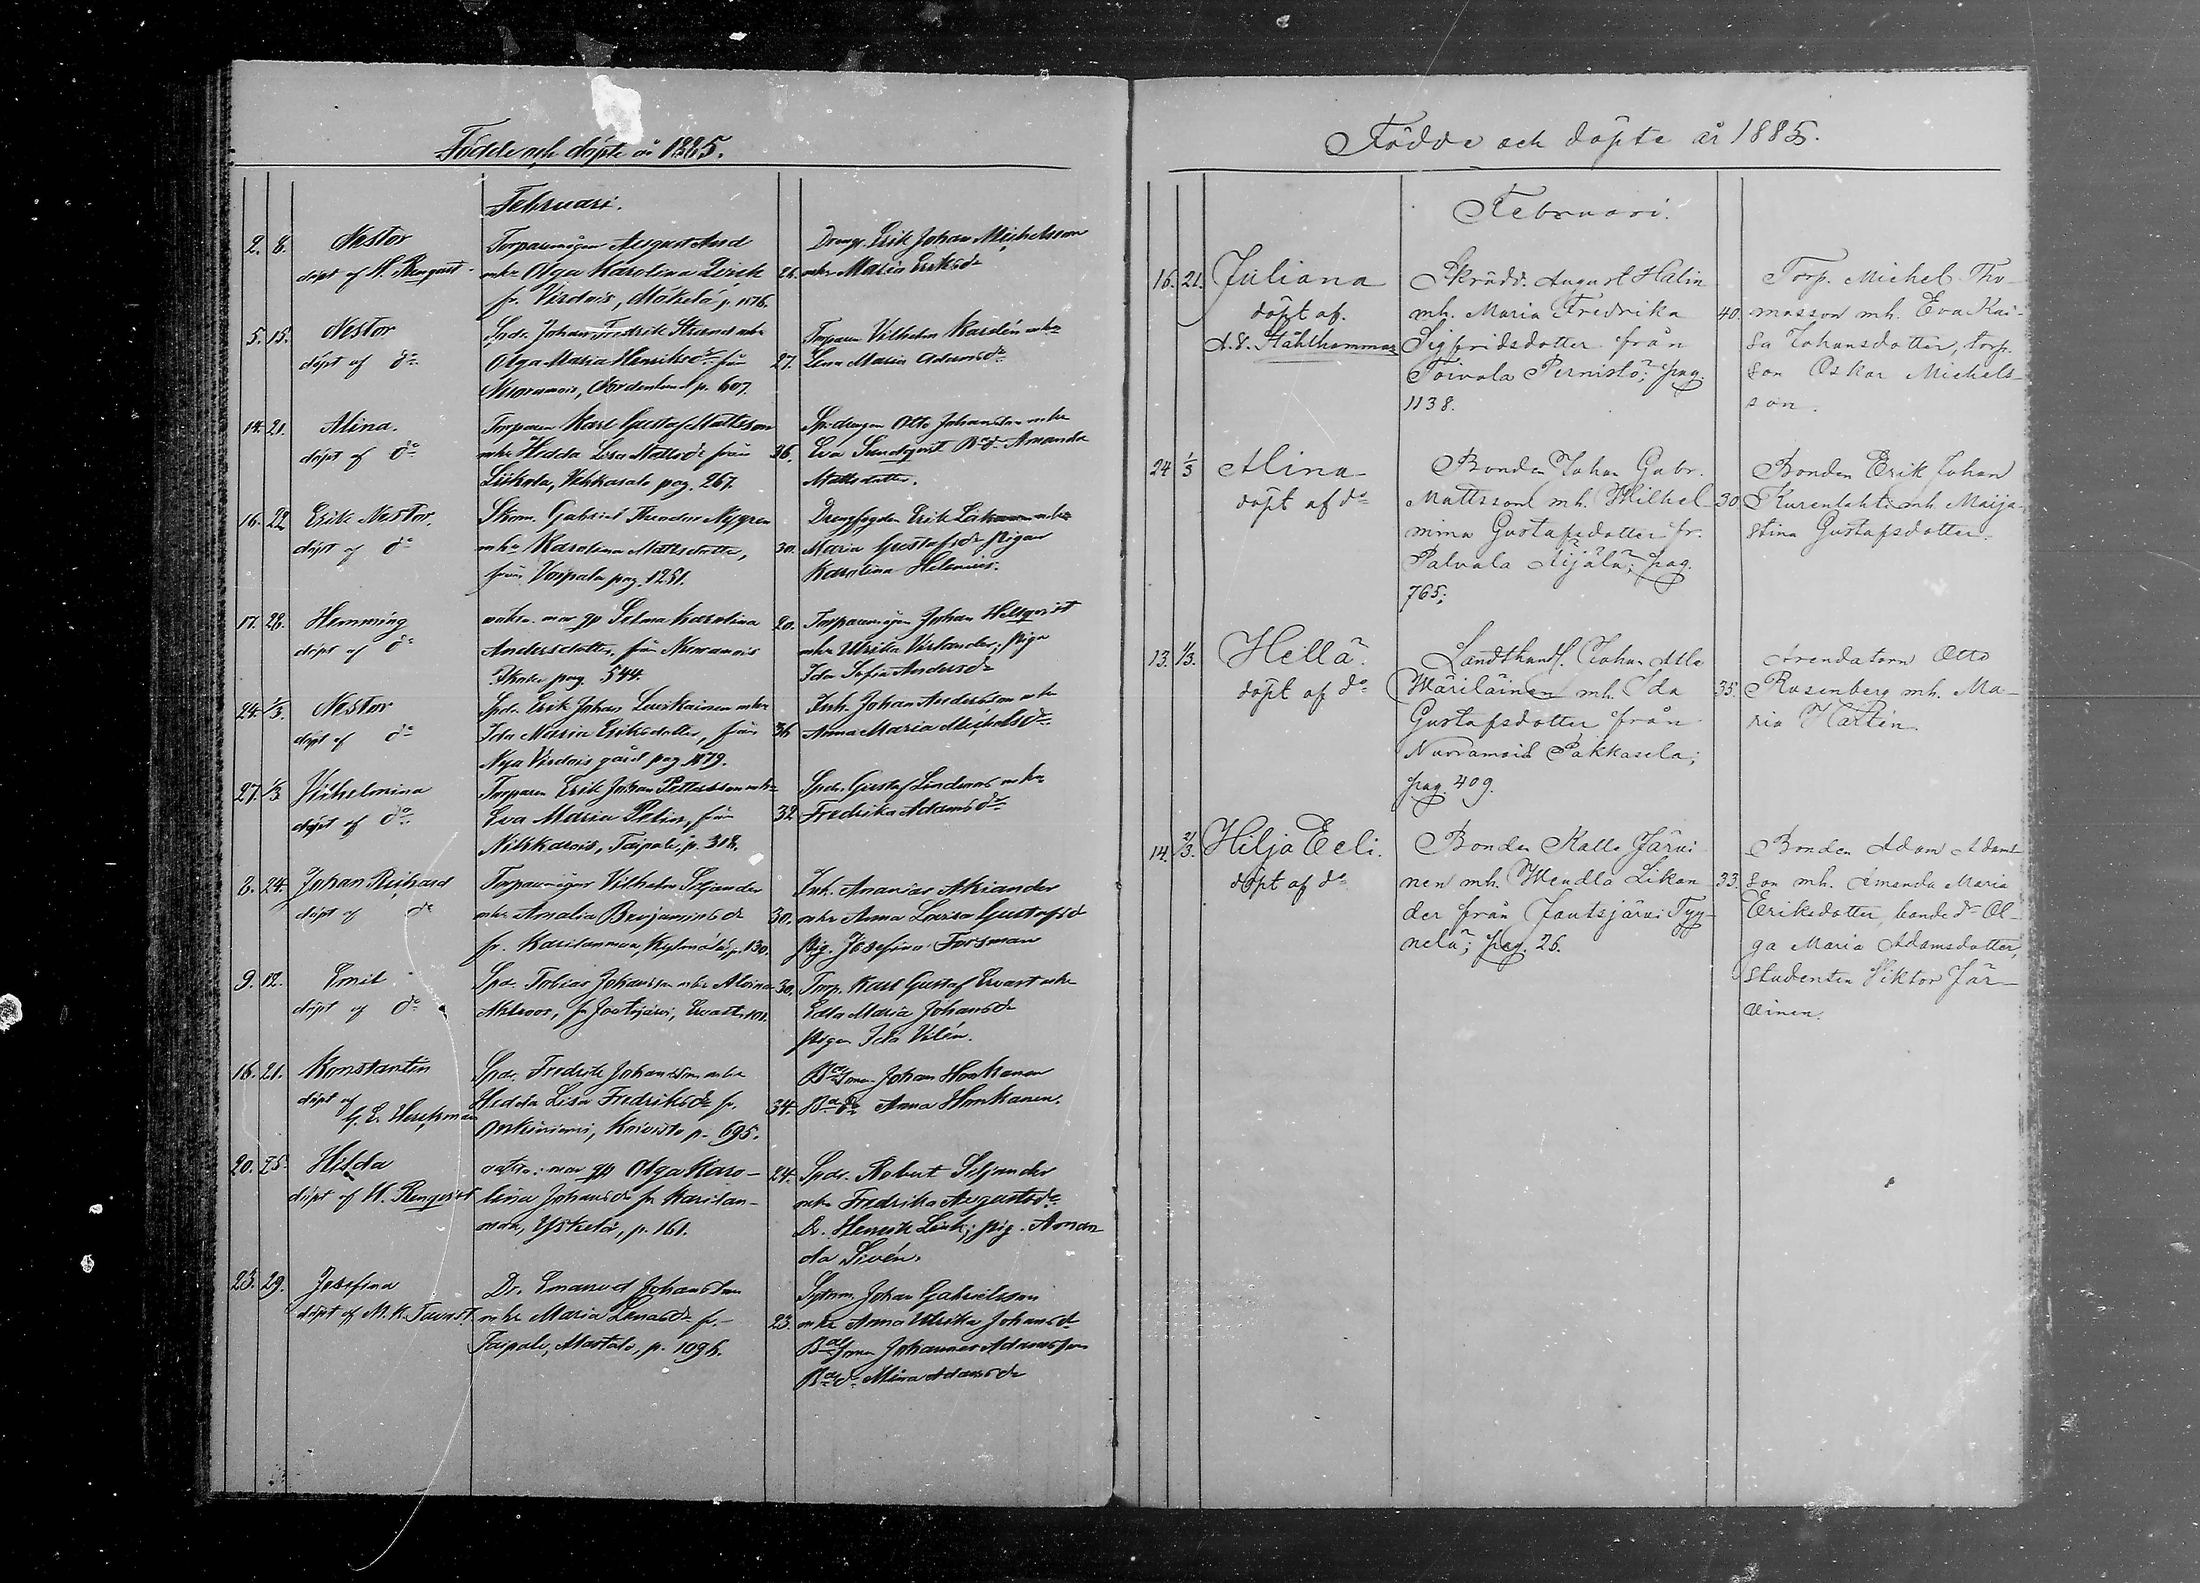 Födde och döpte år 1885.
Februari.
2. 8. Nestor
döpt af H. Renqvist
Torparemågen August Aord
mhu Olga Karolina Linck
fr. Virdois, Mäkelä p. 1176.
26.
Dreng. Erik Johan Michelsson
mhu Maria Eriksdr
5. 15. Nestor
döpt af do
Spdr. Johan Fredrik Strand mhu
Olga Maria Henriksdr från
Nuoramois, Nordenlund p. 607.
27.
Torparen Vilhelm Karlén mhu
Lena Maria Adamsdr
14. 21. Alina.
döpt af do
Torparen Karl Gustaf Mattsson
mhu Hedda Lisa Mattsdr från
Liikola, Vehkasalo pag. 267.
36.
Sp. drengen Otto Johansson mhu
Eva Sundqvist Bdedr Amanda
Mattsdotter.
16. 22 Erik Nestor.
döpt af do
Skom. Gabriel Theodor Nygren
mhu Karolina Mattsdotter,
från Voipala pag. 1251.
30.
Drengfogden Erik mhu
Maria Gustafsdr pigan
Karolina Helenius.
17. 28. Hemming
döpt af do
Selma Karolina
Andersdotter, från Nuoramois
pag. 544.
20.
Torparemågen Johan Hellqvist
mhu Ulrika Virlander, piga
Ida Sofia Andersdr
24. 1/3. Nestor
döpt af do
Spdr. Erik Johan Leivikainen mhu
Ida Maria Eriksdotter, från
Nya Virdois gård pag. 1179.
36
Inh. Johan Andersson mhu
Anna Maria Michelsdr
27. 1/3 Vilhelmina
döpt af do
Torparen Erik Johan Pettersson mhu
Eva Maria Pelin, från
Nikkarois, Taipale, p. 318.
32
Spdr. Gustaf Lindroos mhu
Fredrika Adamsdr
2. 24. Johan Richard
döpt af do
Torparemågen Vilhelm Siljander
mhu Amalia Benjaminsdr
fr. Karilanmaa, Kylmälä, p. 130.
30.
Inh. Ananias Askiander
mhu Anna Lovisa Gustafsdr
pig. Josefina Forsman
9. 12. Emil
döpt af do
Spdr. Tobias Johansson mhu Alvina
Ahlroos, fr Joutsjärvi, Ervast, 101.
30.
Torp. Karl Gustaf Ervast mhu
Edla Maria Johansdr
pigan Ida Vilén.
16. 21. Konstantin
döpt af
G. E. Herckman
Spdr. Fredrik Johansson mhu
Hedda Lisa Fredriksdr fr.
Onkiniemi, Koivisto p. 695.
34.
Bdesonen Johan Honkanen
Bdedr Anna Honkanen.
20. 25. Hilda
döpt af H. Renqvist
Olga Karo-
lina Johansdr fr Karilan-
maa, Yskelä, p. 161.
24.
Spdr. Robert Siljander
mhu Fredrika Augustsdr
Dr. Henrik Link; pig. Aman
da Sivén.
23. 29. Josefina
döpt af M. K. Tavast.
Dr. Emanuel Johansson
mhu Maria Lenasdr fr.
Taipale, Mattala, p. 1096.
23.
Sytnm. Johan Gabrielsson
mhu Anna Ulrika Johansdr
Bdesonen Johannes Adamsson
Bdedr Miina Adamsdr
Födde och döpte år 1885.
Februari.
16. 21. Juliana
döpt af.
A. S. Stählhammar
Skrädd. August Halin
mh. Maria Fredrika
Sigfridsdotter från
Toivola Pernistö; pag.
1138.
40.
Torp. Michel Tho-
masson mh. Eva Kai-
sa Johansdotter, torp.
son Oskar Michels-
son.
24 1/3 Alina
döpt af do
Bonden Johan Gabr.
Mattsson mh. Wilhel
mina Gustafsdotter fr.
Palvala Äijälä; pag.
765;
30
Bonden Erik Johan
Kurenlahti mh. Maija
Stina Gustafsdotter.
13. 1/3. Hellä.
döpt af do
Landthandl. Johan Atle
Wäriläinen mh. Ida
Gustafsdotter från
Nuoramois Pakkasela;
pag. 409.
35.
Arendatorn Otto
Rosenberg mh. Ma-
ria Hartin
14. 21/3. Hilja Eeli.
döpt af do
Bonden Kalle Järvi
nen mh. Wendla Likan
der från Joutsjärvi Tyy-
nelä; pag. 26.
33.
Bonden Adam Adams
son mh. Amanda Maria
Eriksdotter, bondedr Ol-
ga Maria Adamsdotter,
studenten Viktor Jär-
vinen.